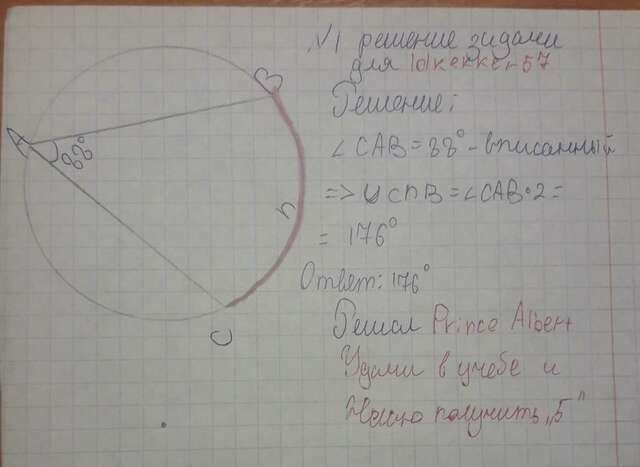 √1 решение зидачи
для lolkekker57
B
Решение:
A
88°
∠CAB=88°-вписанный
=> ∪CnB=∠CAB·2=
n
= 176°
Ответ: 176°
C
Решал Prince Albert
Удачи в учебе и
получить „5"